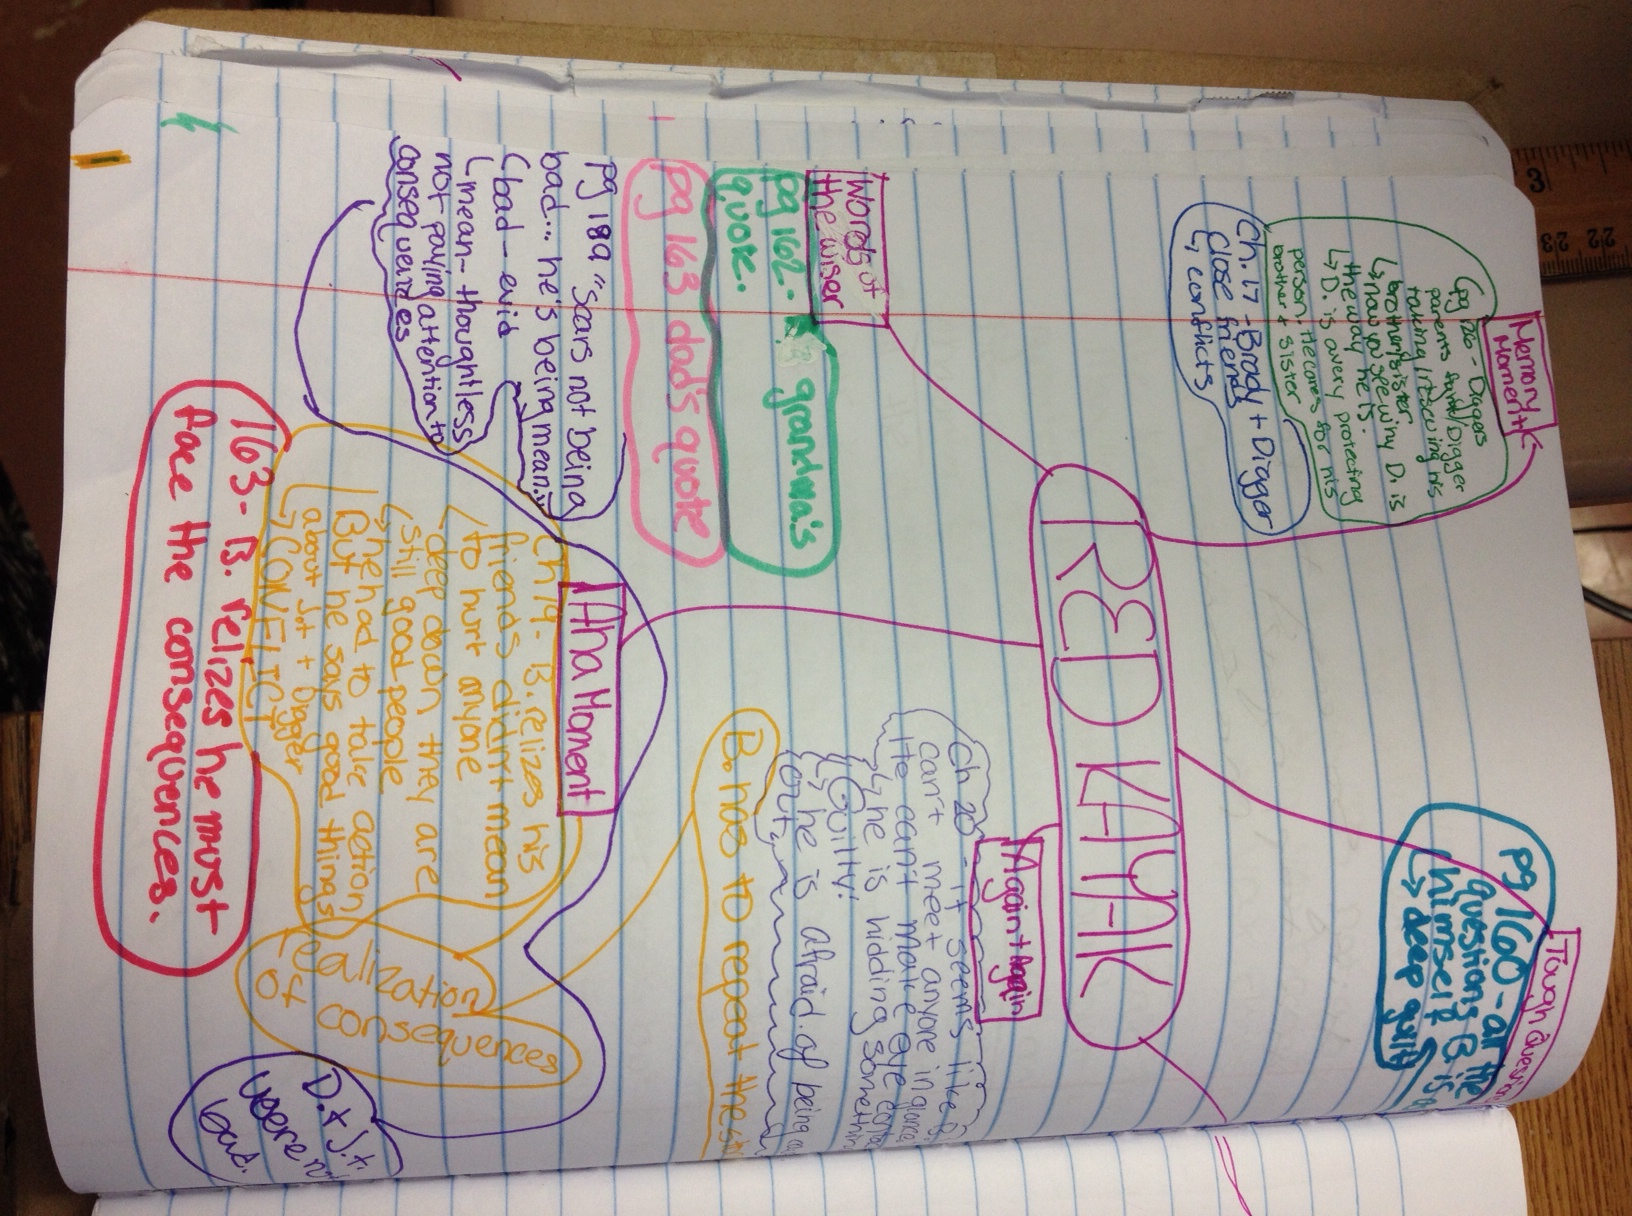 RED KAYAK
Memory Moment
(pg 26 - Diggers
parents
brother/sister
↳ now you see why D. is
the way he is.
↳ D. is a very protecting
person. He cares for his
brother & sister
Ch. 17 - Brady + Digger
close friends
↳ conflicts
Tough Questions
pg 160 - all the
questions B. is
himself
→ deep guilt
Words of
the wiser
pg 162 - grandma's
quote.
pg 163 dad's quote
Again + Again
Ch 20 - it seems like B.
can't meet anyone in glance
He can't make eye
↳ he is hidding
Guilty!
↳ he is afraid of being
out
B. has to repeat the
Aha Moment
Ch 19 - B. relizes his
friends didn't mean
to hurt anyone
↳ deep down they are
still good people
↳ he had to take action
But he says good things
about J.t + Digger
↳ CONFLICT
realization
of consequences
pg 189 "Soars not being
bad... he's being mean..."
(bad - evid
(mean - thoughtless
not paying attention to
consequences
D. & J.t.
were not
bad.
163 - B. relizes he must
face the consequences.
3
23 22